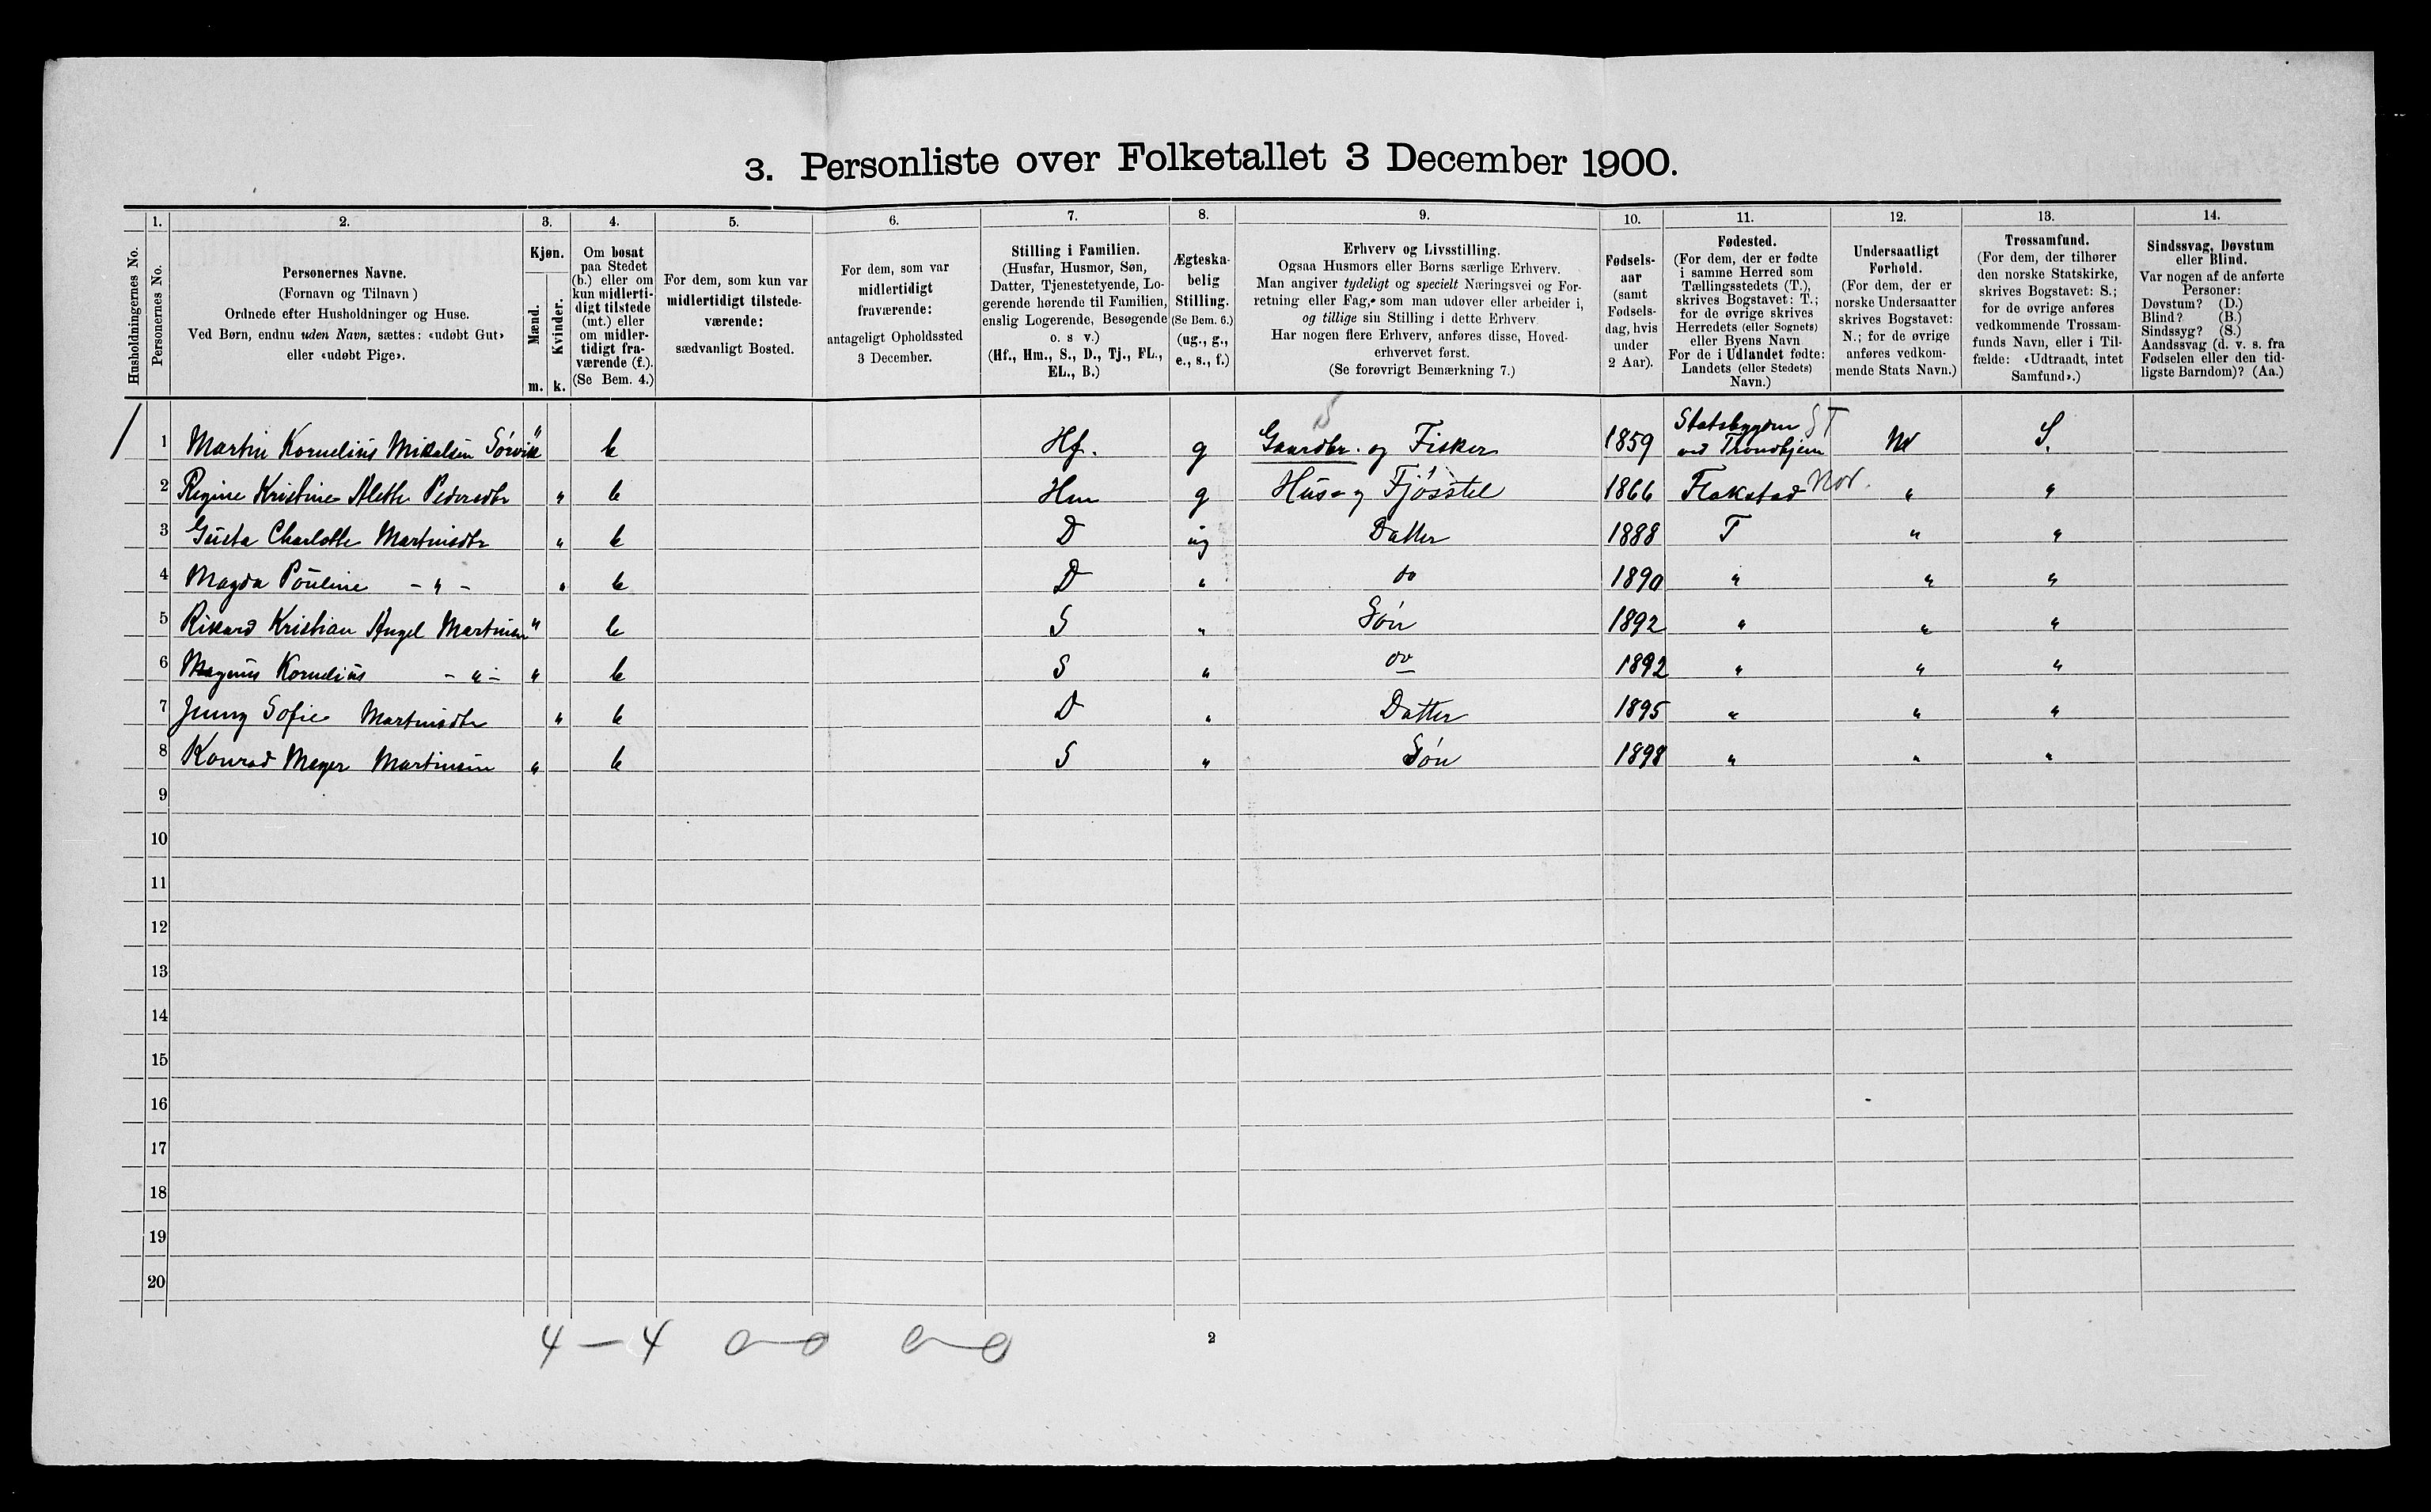 3. Personliste over Folketallet 3 December 1900.
1. 2. 3. 4. 5. 6. 7. 8. 9. 10. 11. 12. 13. 14.
Husholdningernes No.
Personernes No.
Personernes Navne.
(Fornavn og Tilnavn)
Ordnede efter Husholdninger og Huse.
Ved Børn, endnu uden Navn, sættes: «udøbt Gut»
eller «udøbt Pige».
Kjøn.
Mænd.
Kvinder.
m. k.
Om bosat
paa Stedet
(b.) eller om
kun midlerti-
digt tilstede
(mt.) eller
om midler-
tidigt fra-
værende (f.).
(Se Bem. 4.)
For dem, som kun var
midlertidigt tilstede-
værende:
sædvanligt Bosted.
For dem, som var
midlertidigt
fraværende:
antageligt Opholdssted
3 December.
Stilling i Familien.
(Husfar, Husmor, Søn,
Datter, Tjenestetyende, Lo-
gerende hørende til Familien,
enslig Logerende, Besøgende
o. s v.)
(Hf., Hm., S., D., Tj., FL.,
EL., B.)
Ægteska-
belig
Stilling.
(Se Bem. 6.)
(ug., g.,
e., s., f.)
Erhverv og Livsstilling.
Ogsaa Husmors eller Børns særlige Erhverv.
Man angiver tydeligt og specielt Næringsvei og For-
retning eller Fag, som man udøver eller arbeider i,
og tillige sin Stilling i dette Erhverv
Har nogen flere Erhverv, anføres disse, Hoved-
erhvervet først.
(Se forøvrigt Bemærkning 7.)
Fødsels-
aar
(samt
Fødsels-
dag, hvis
under
2 Aar).
Fødested.
(For dem, der er fødte
i samme Herred som
Tællingsstedets (T.),
skrives Bogstavet: T.;
for de øvrige skrives
Herredets (eller Sognets)
eller Byens Navn
For de i Udlandet fødte:
Landets (eller Stedets)
Navn.)
Undersaatligt
Forhold.
(For dem, der er
norske Undersaatter
skrives Bogstavet:
N.; for de øvrige
anføres vedkom-
mende Stats Navn.)
Trossamfund.
(For dem, der tilhører
den norske Statskirke,
skrives Bogstavet: S.;
for de øvrige anføres
vedkommende Trossam-
funds Navn, eller i Til-
fælde: «Udtraadt, intet
Samfund».)
Sindssvag, Døvstum
eller Blind.
Var nogen af de anførte
Personer:
Døvstum? (D.)
Blind? (B.)
Sindssyg? (S.)
Aandssvag (d. v. s. fra
Fødselen eller den tid-
ligste Barndom)? (Aa.)
1 1 Martin Kornelius Mikalsen Sørvik " b Hf. g Gaardbr. og Fisker 1859 Statsbygden ved Trondhjem ST N S.
2 Regine Kristine Aleth Pedersdtr " b Hm g Hus- og Fjøsstel 1866 Flakstad Nor. " "
3 Gusta Charlotte Martinsdtr " b D ug Datter 1888 T " "
4 Magda Pouline - " - " b D " do 1890 " " "
5 Rikard Kristian Angel Martinsen " b S " Søn 1892 " " "
6 Magnus Kornelius - " - " b S " do 1892 " " "
7 Jenny Sofie Martinsdtr " b D " Datter 1895 " " "
8 Konrad Meyer Martinsen " b S " Søn 1898 " " "
9
10
11
12
13
14
15
16
17
18
19
20
4 – 4 0 – 0 0 – 0
2